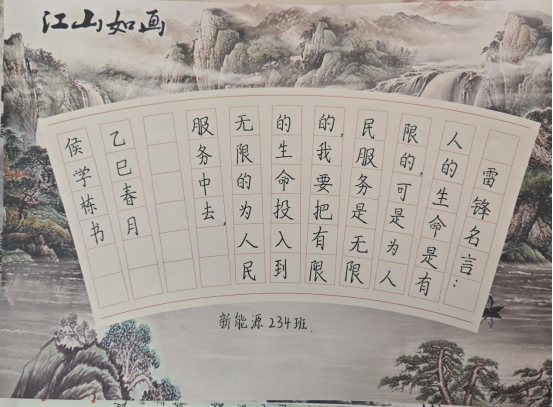 江山如画
雷锋名言：
人的生命是有
限的，可是为人
民服务是无限
的，我要把有限
的生命投入到
无限的为人民
服务中去，
乙巳春月
侯学栋书
新能源234班.